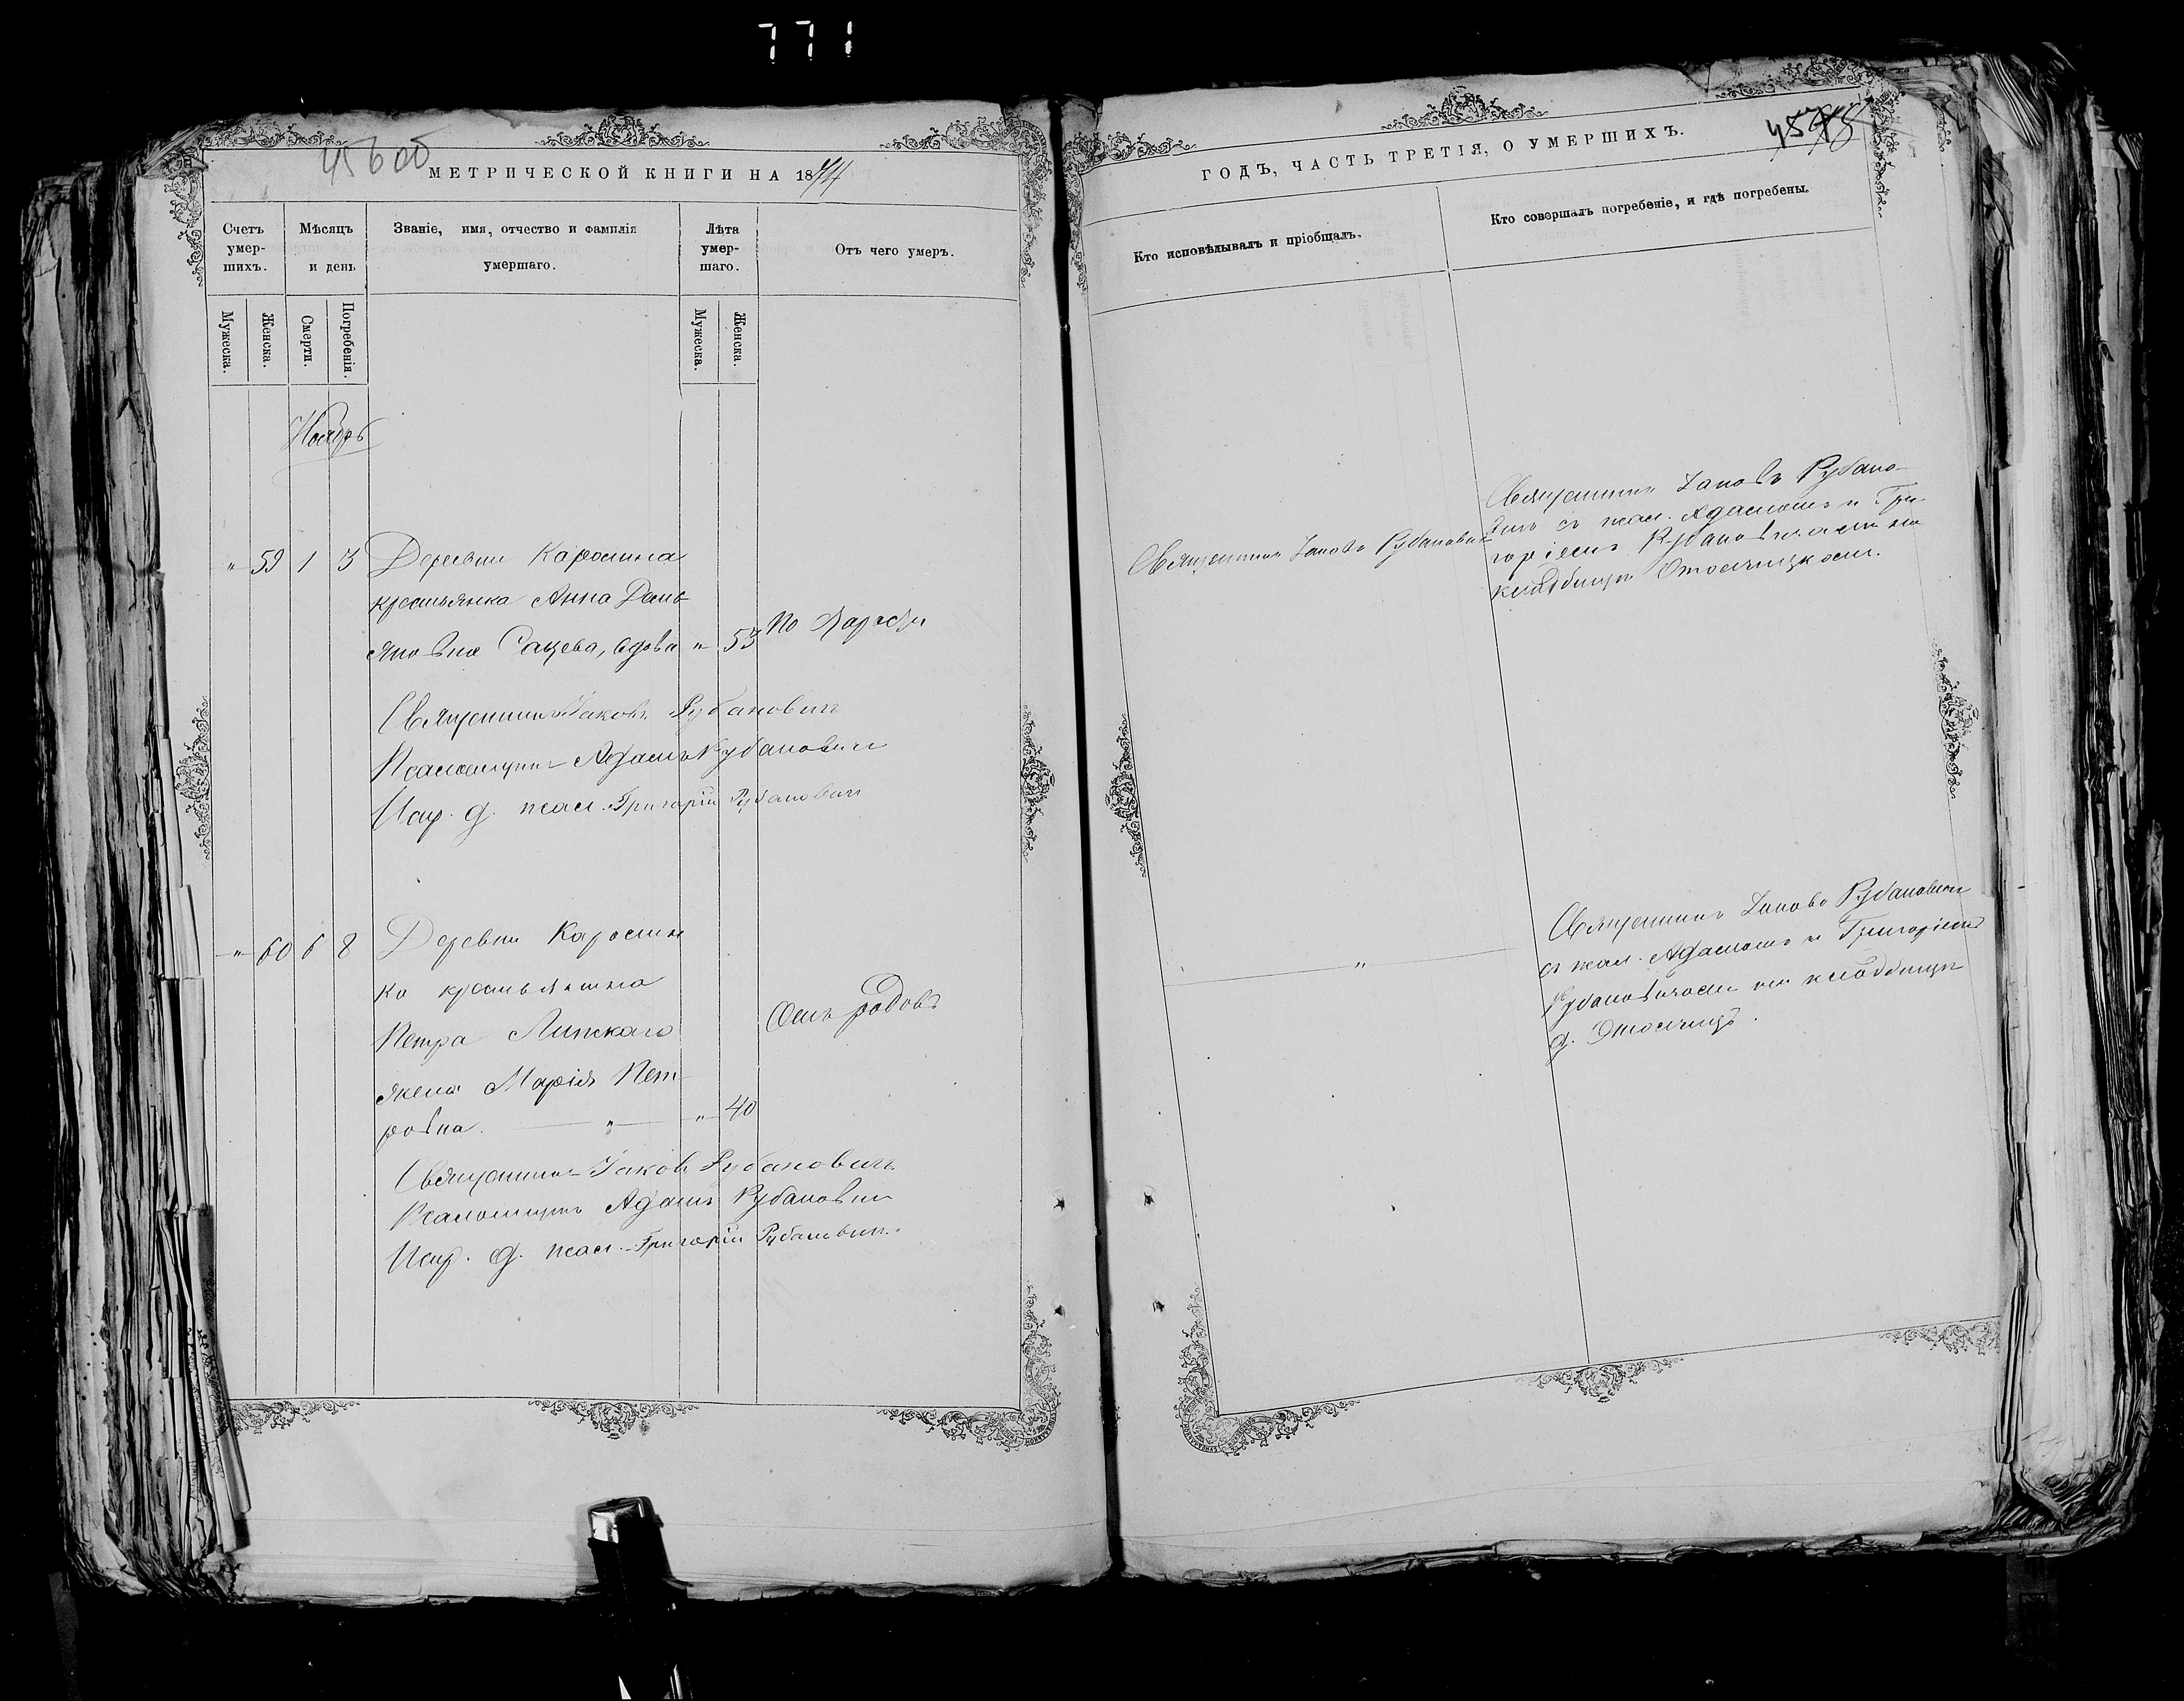 771
МЕТРИЧЕСКОЙ КНИГИ НА 18
Счетъ умер-шихъ.
Мѣсяцъ и день
Званіе, имя, отчество и фамилія умершаго.
Лѣта умер-шаго.
Отъ чего умеръ.
Мужеска.
Женска.
Смерти.
Погребенія.
Мужеска.
Женска.
Ноябрь
" 59 1 3 Деревни Каролина
крестьянка Анна Демь-
яновна вдова " 53
Священникъ Іаковъ Рубановичъ
Псаломщикъ Адамъ Рубановичъ
Испр. д. псал. Григорій Рубановичъ
" 60 6 8 Деревни Каролин
ка крестьянина
Петра Липскаго
жена Марія Пет-
ровна. " " 40
Отъ родовъ
Священникъ Іаковъ Рубановичъ
Псаломщикъ Адамъ Рубановичъ
Испр. д. псал. Григорій Рубановичъ.
ГОДЪ, ЧАСТЬ ТРЕТІЯ, О УМЕРШИХЪ.
Кто исповѣдывалъ и пріобщалъ.
Кто совершалъ погребеніе, и гдѣ погребены.
Священникъ Іаковъ Рубановичъ
Священникъ Іаковъ Рубано-
вичъ съ псал. Адамомъ и Гри-
горіемъ Рубановичами на
кладбищѣ
"
Священникъ Іаковъ Рубановичъ
съ псал. Адамомъ и Григоріемъ
Рубановичами на кладбищѣ
д.